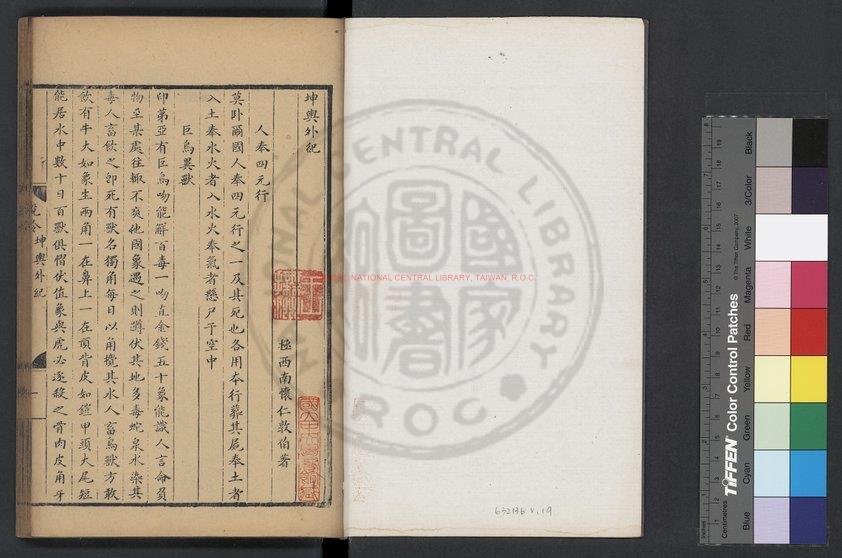 坤輿外紀
極西南懷仁敦伯著
人奉四元行
莫卧爾國人奉四元行之一及其死也各用本行葬其屍奉土者
入土奉水火者入水火奉氣者懸尸于空中
巨鳥異獸
印第亞有巨鳥吻能解百毒一吻直金錢五十象能識人言命負
物至某處往輒不爽他國象遇之則蹲伏其地多毒蛇泉水染其
毒人畜飲之卽死有獸名獨角每日以角攪其水人畜鳥獸方敢
飲有牛大如象生兩角一在鼻上一在頂背皮如鎧甲頭大尾短
能居水中數十日百獸俱慴伏值象與虎必逐殺之骨肉皮角牙
說鈴 坤輿外紀
NATIONAL CENTRAL LIBRARY
國家圖書館
R.O.C
NATIONAL CENTRAL LIBRARY, TAIWAN, R.O.C.
632136 v.19
TIFFEN Color Control Patches
© The Tiffen Company, 2007
Centimetres
Inches
Blue
Cyan
Green
Yellow
Red
Magenta
White
3/Color
Black